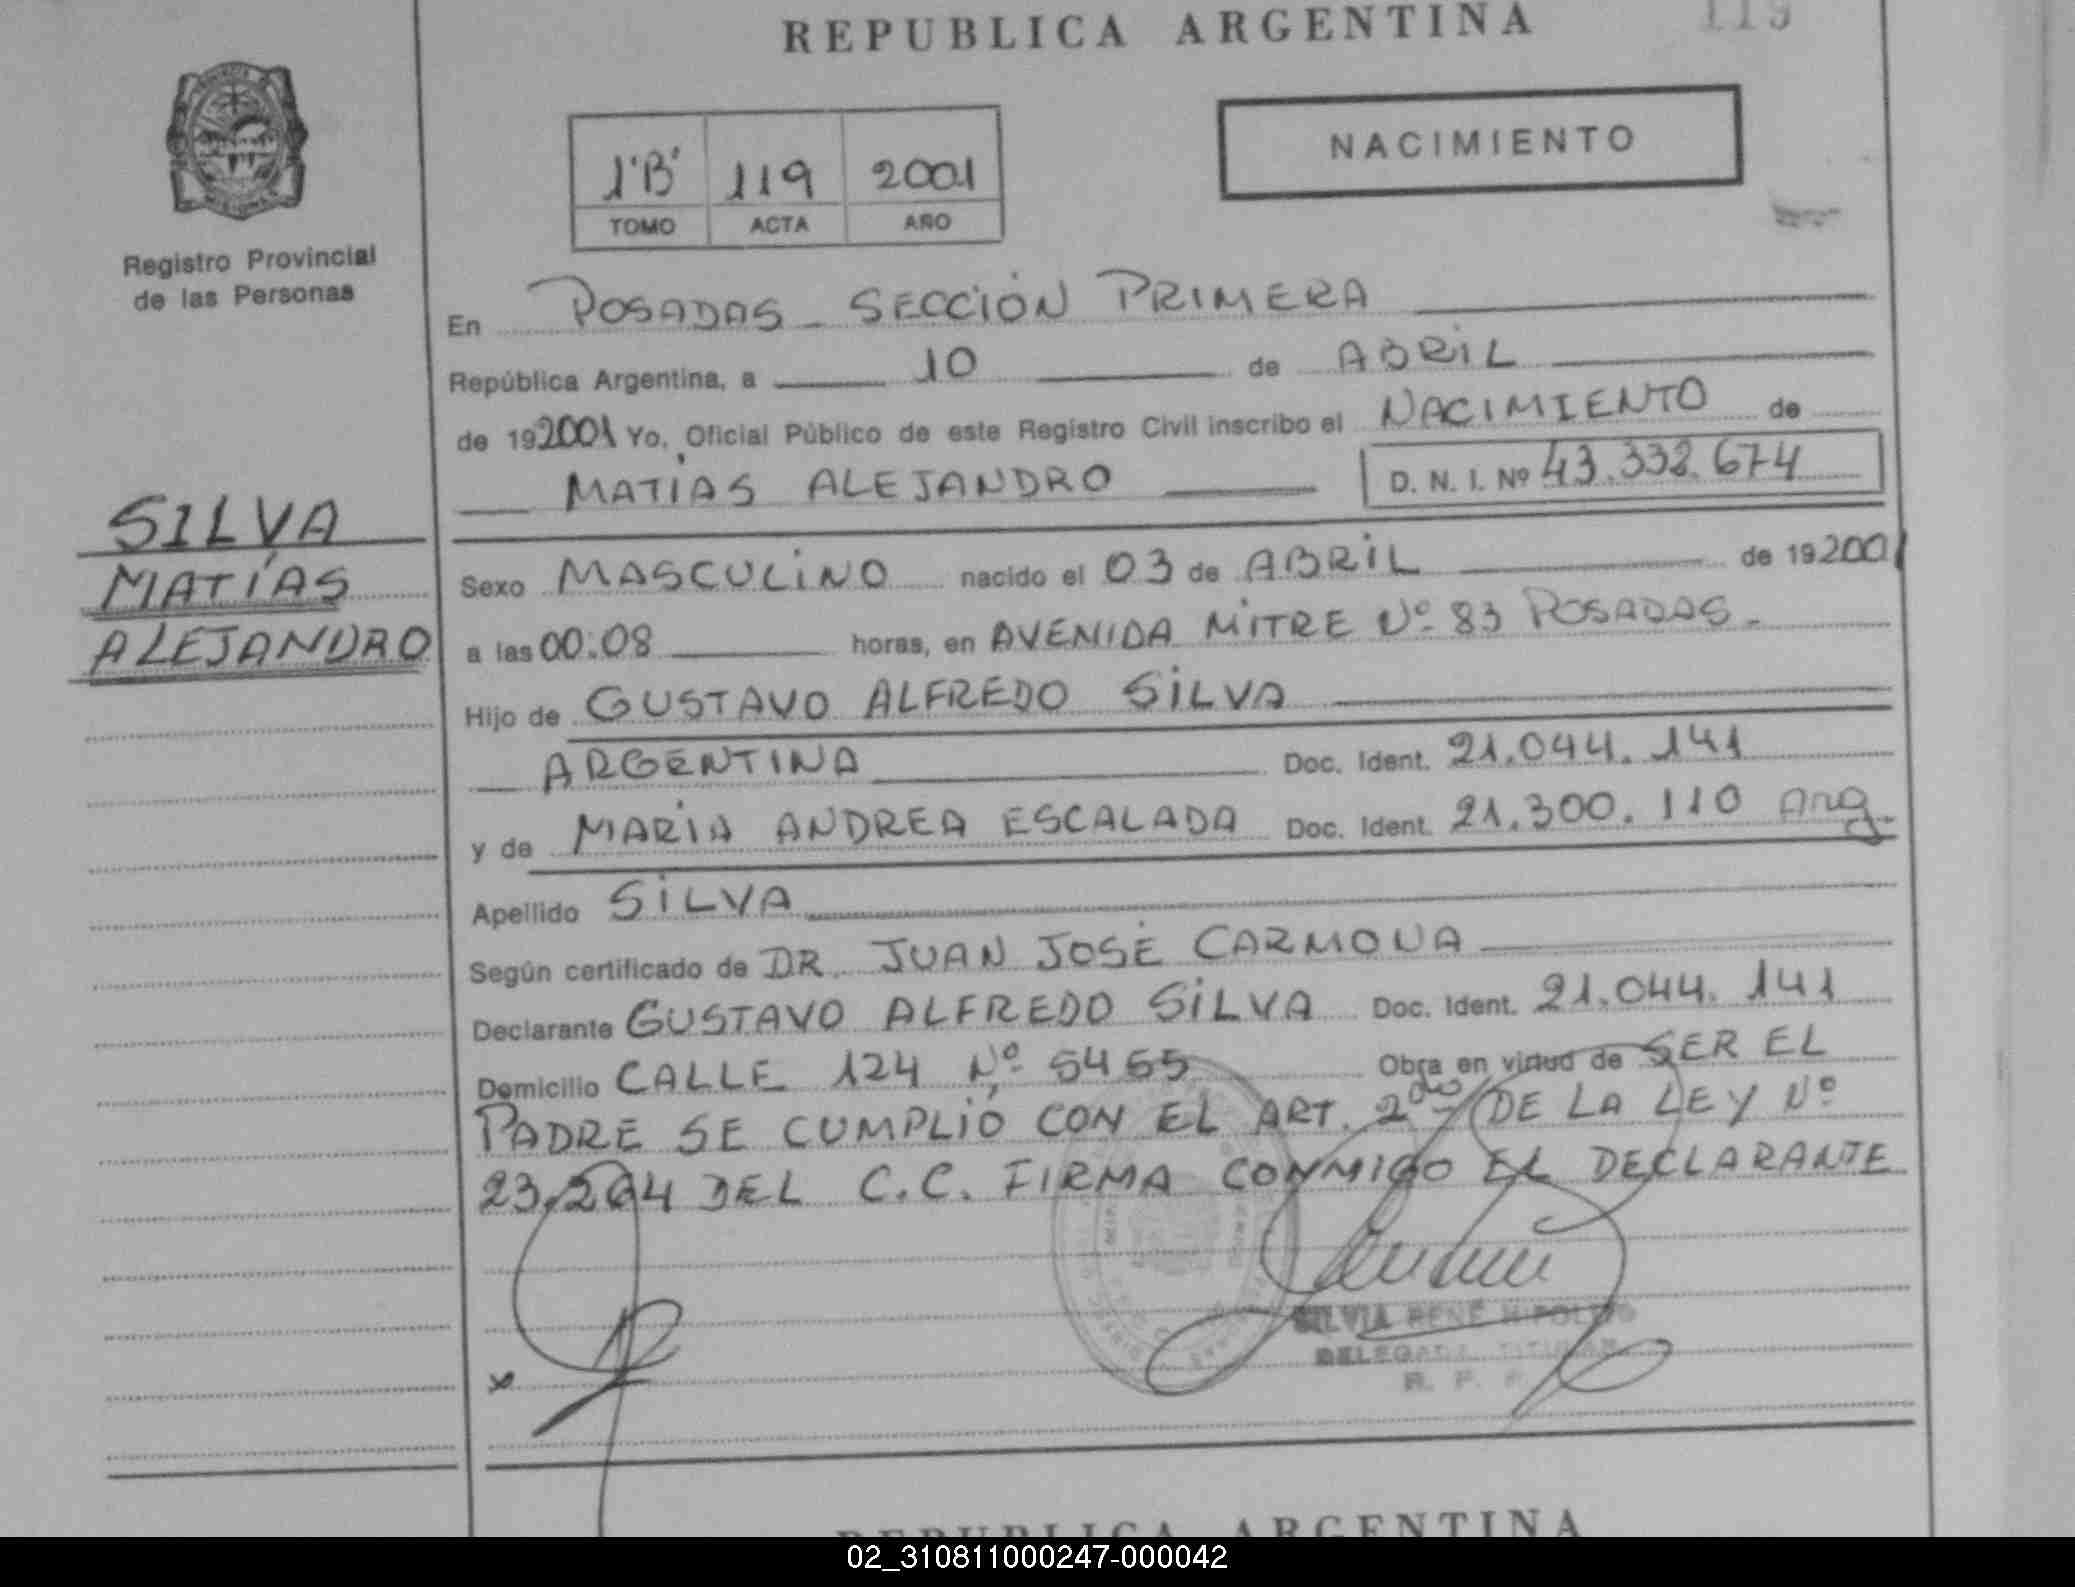 REPUBLICA ARGENTINA
119
NACIMIENTO
1'B' 119 2001
TOMO ACTA AÑO
Registro Provincial
de las Personas
En POSADAS - SECCIÓN PRIMERA
República Argentina, a 10 de ABRIL
de 192001 Yo, Oficial Público de este Registro Civil inscribo el NACIMIENTO de
MATÍAS ALEJANDRO D. N. I. Nº 43.332.674
SILVA
MATÍAS
ALEJANDRO
Sexo MASCULINO nacido el 03 de ABRIL de 192001
a las 00:08 horas, en AVENIDA MITRE Nº 83 POSADAS.
Hijo de GUSTAVO ALFREDO SILVA
ARGENTINA Doc. Ident. 21.044.141
y de MARÍA ANDREA ESCALADA Doc. Ident. 21.300.110 Arg.
Apellido SILVA
Según certificado de DR. JUAN JOSÉ CARMONA
Declarante GUSTAVO ALFREDO SILVA Doc. Ident. 21.044.141
Domicilio CALLE 124 Nº 5465 Obra en virtud de SER EL
PADRE SE CUMPLIÓ CON EL ART. 2do DE LA LEY Nº
23.264 DEL C.C. FIRMA CONMIGO EL DECLARANTE
SILVIA RENÉ HIPOLITO
DELEGADA TITULAR
R. P. P.
REPUBLICA ARGENTINA
02_310811000247-000042